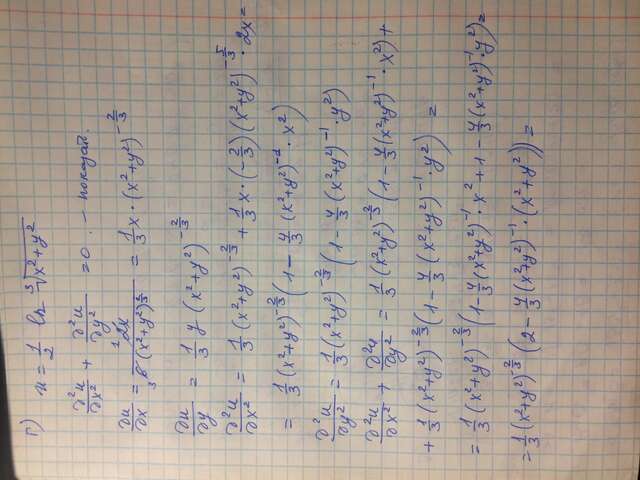 г) u = 1/2 ln ∛(x²+y²)
∂²u/∂x² + ∂²u/∂y² = 0. – показат.
∂u/∂x = 2x/(6(x²+y²)^(2/3)) = 1/3 x · (x²+y²)^(-2/3)
∂u/∂y = 1/3 y (x²+y²)^(-2/3)
∂²u/∂x² = 1/3 (x²+y²)^(-2/3) + 1/3 x · (-2/3) (x²+y²)^(-5/3) · 2x =
= 1/3 (x²+y²)^(-2/3) (1 - 4/3 (x²+y²)^(-1) · x²)
∂²u/∂y² = 1/3 (x²+y²)^(-2/3) (1 - 4/3 (x²+y²)^(-1) · y²)
∂²u/∂x² + ∂²u/∂y² = 1/3 (x²+y²)^(-2/3) (1 - 4/3 (x²+y²)^(-1) · x²) +
+ 1/3 (x²+y²)^(-2/3) (1 - 4/3 (x²+y²)^(-1) · y²) =
= 1/3 (x²+y²)^(-2/3) (1 - 4/3 (x²+y²)^(-1) · x² + 1 - 4/3 (x²+y²)^(-1) · y²) =
= 1/3 (x²+y²)^(-2/3) (2 - 4/3 (x²+y²)^(-1) · (x²+y²)) =